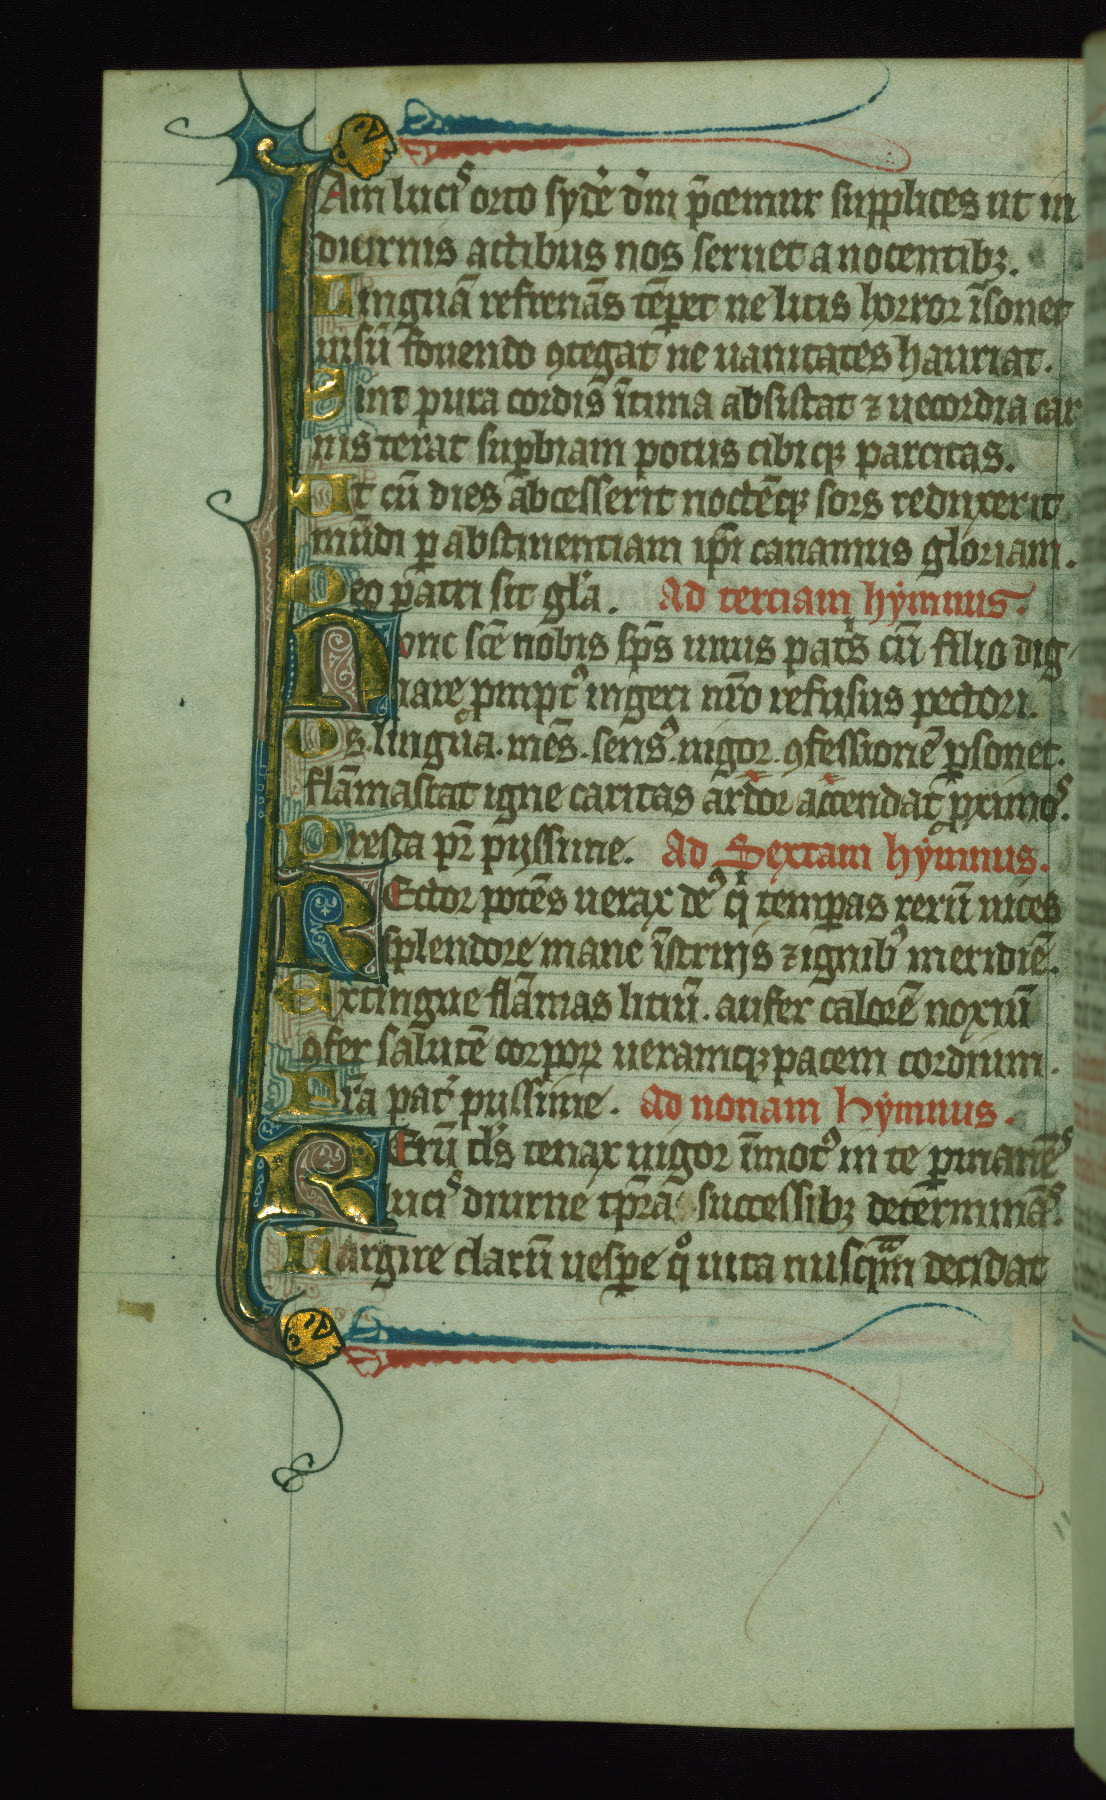 IAm luciꝰ orto syde᷒ dn̄i p̄cemur supplices ut in
diurnis actibus nos seruet a nocentibꝫ.
Linguā refrenās te̅pet ne litis horror īsonet
uisū fouendo ꝯtegat ne uanitates hauriat.
Sint pura cordis ītima absistat ⁊ uecordia car
nis terat suꝑbiam potus cibiqꝫ parcitas.
Ut cū dies abcesserit noctēqꝫ sors reduxerit
mūdi ꝑ abstinentiam ip̄i canamus gloriam.
Deo patri sit gl̄a. Ad terciam hẏmnus.
Nunc sc̄e nobis sp̄s unus pat's cū filio dig
nare pmptꝰ ingeri nr̄o refusus pectori.
Os. lingua. mēs. sensꝰ. uigor. ꝯfessionē ꝑsonet.
flāmascat igne caritas ardor accendat ꝓximoˢ.
Presta pr̄ pijssime. Ad Sextam hẏmnus.
REctor potēs uerax deꝰ qi temꝑas rerū uices
splendore mane īstruijs ⁊ ignibꝰ meridiē.
Extingue flāmas litiū. aufer calorē noxiū
ꝯfer salutē corporꝝ ueramqꝫ pacem cordium.
Pr̄a pat' pijssime. Ad nonam hẏmnus.
REru̅ d's tenax uigor īmotꝰ in te ꝑmanēˢ
luciˢ diurne tp̄ra successibꝫ determināˢ.
Largire clarū uesꝑe qo uita nusqᵃm decidat